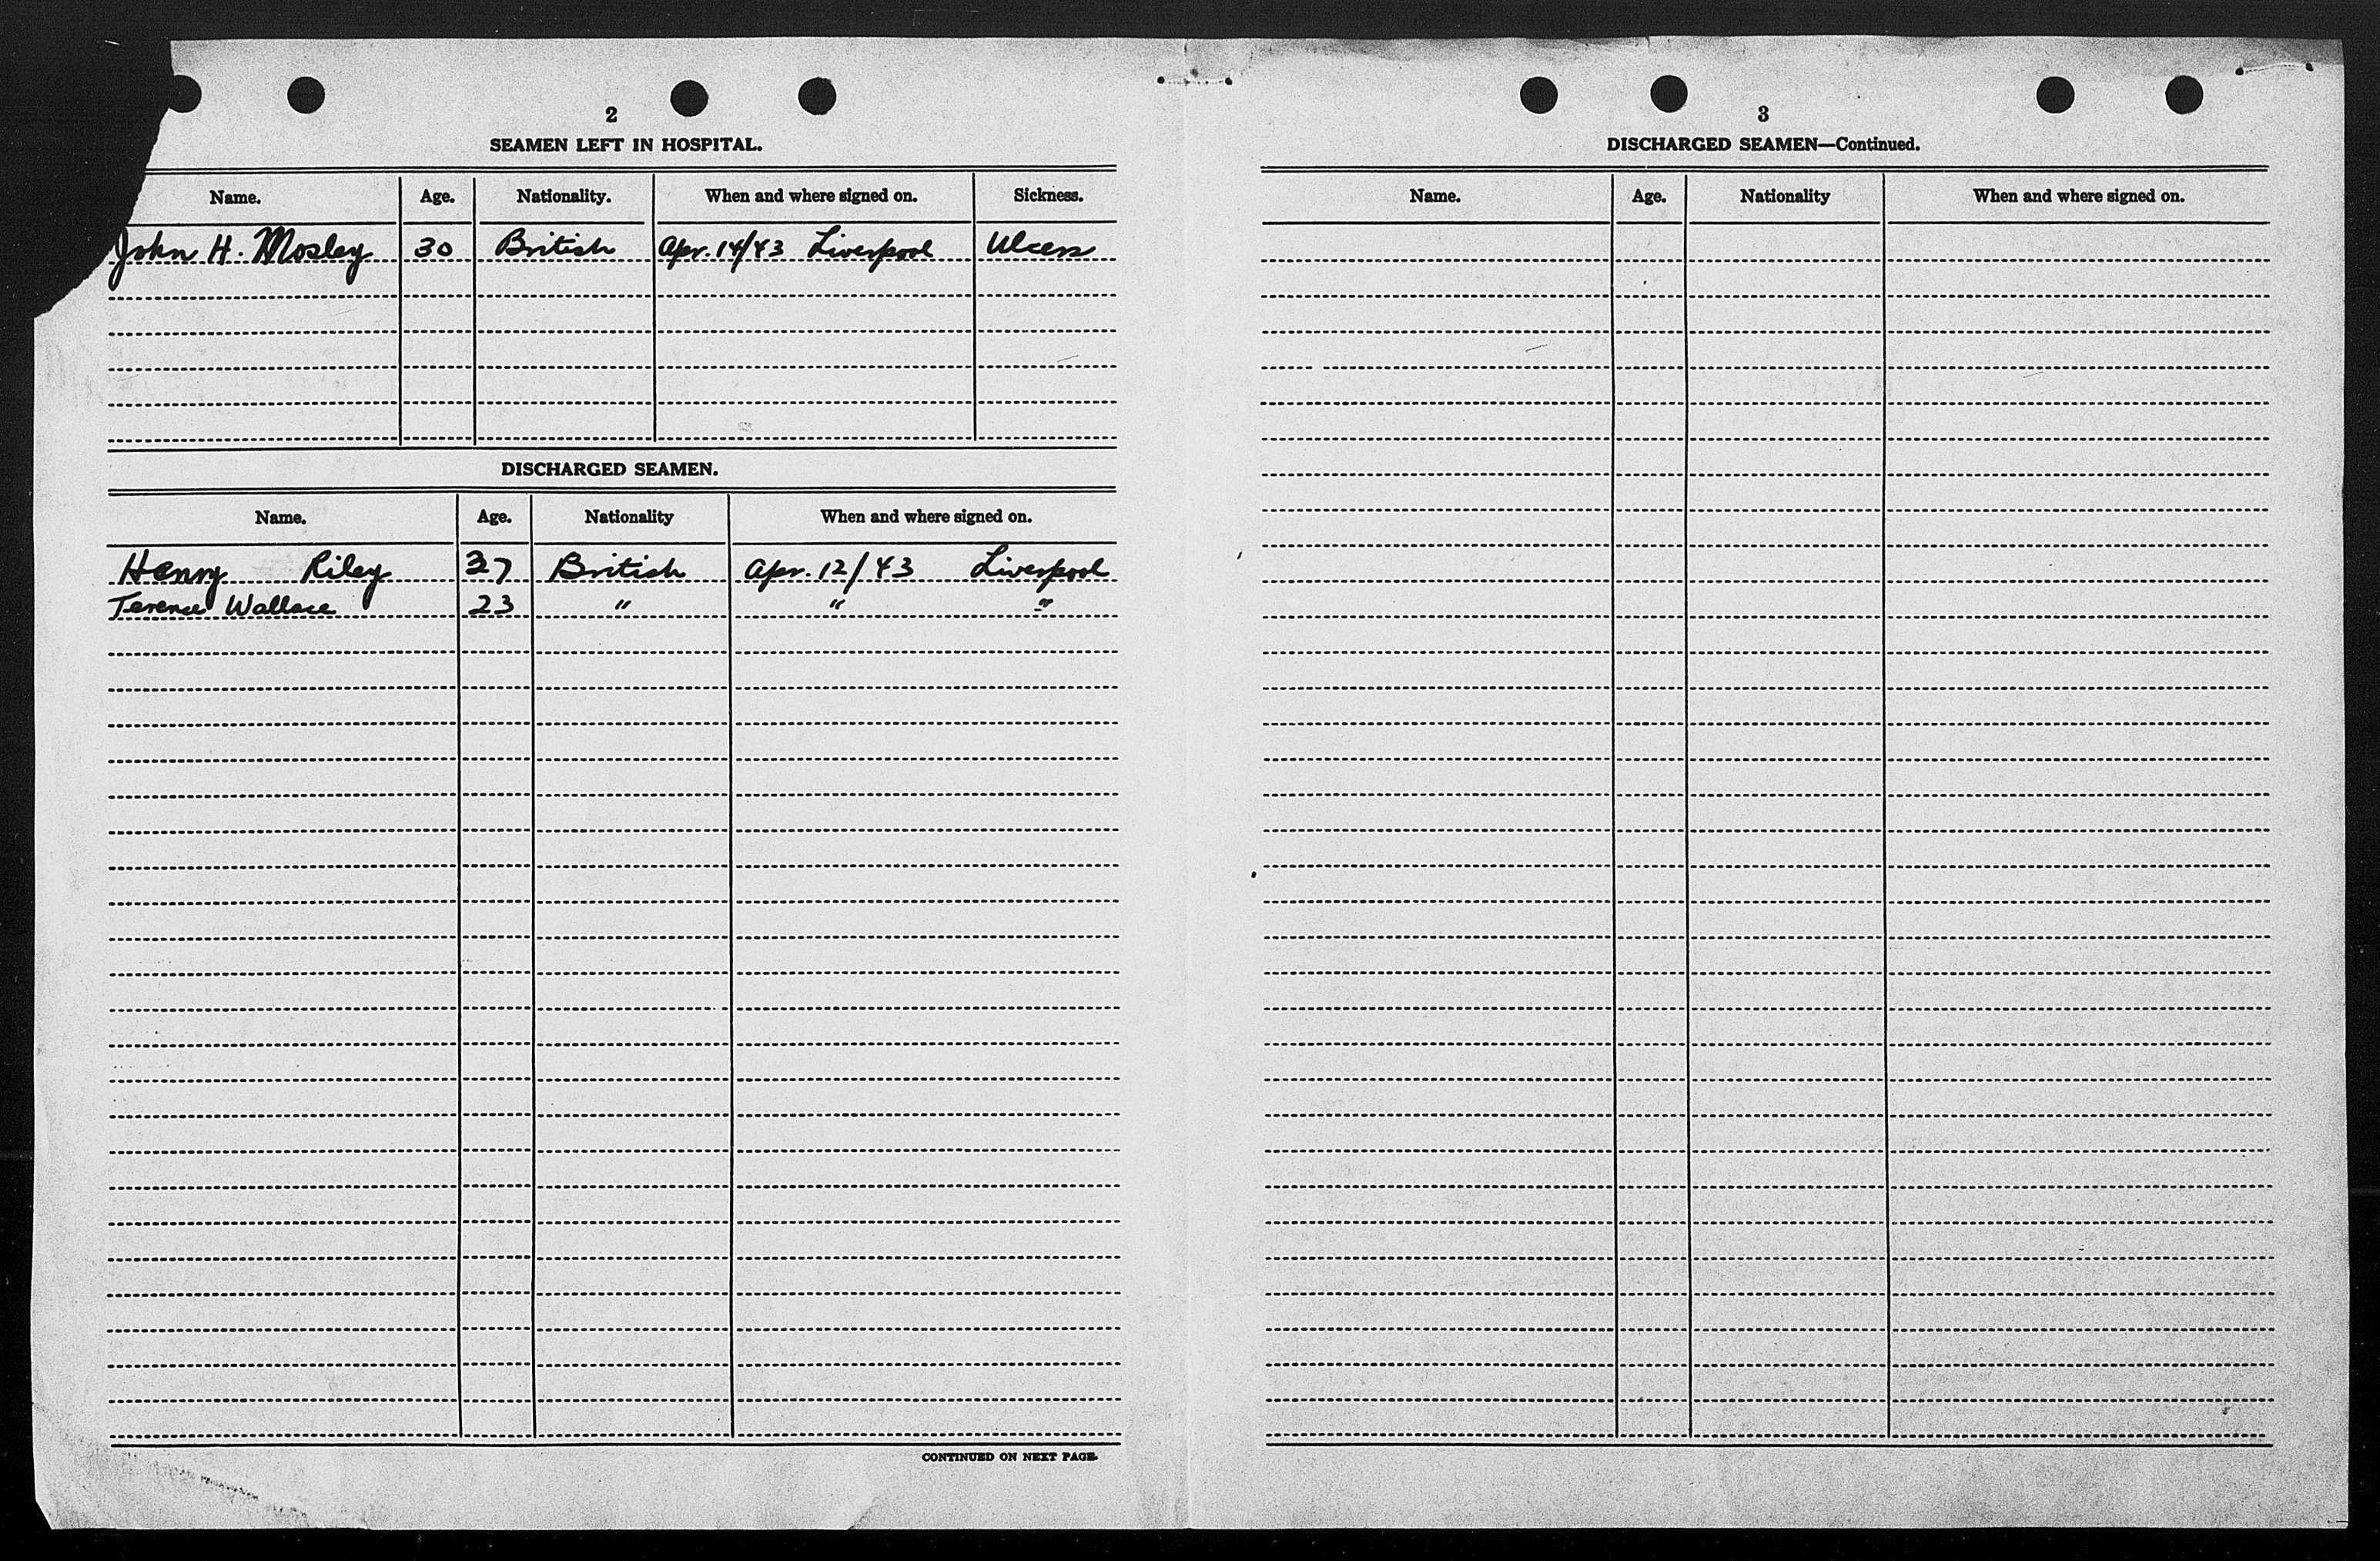 2
SEAMEN LEFT IN HOSPITAL.
Name. Age. Nationality. When and where signed on. Sickness.
John H. Mosley 30 British Apr. 14/43 Liverpool Ulcers
DISCHARGED SEAMEN.
Name. Age. Nationality When and where signed on.
Henry Riley 37 British Apr. 12/43 Liverpool
Terence Wallace 23 " " "
CONTINUED ON NEXT PAGE.
3
DISCHARGED SEAMEN—Continued.
Name. Age. Nationality When and where signed on.